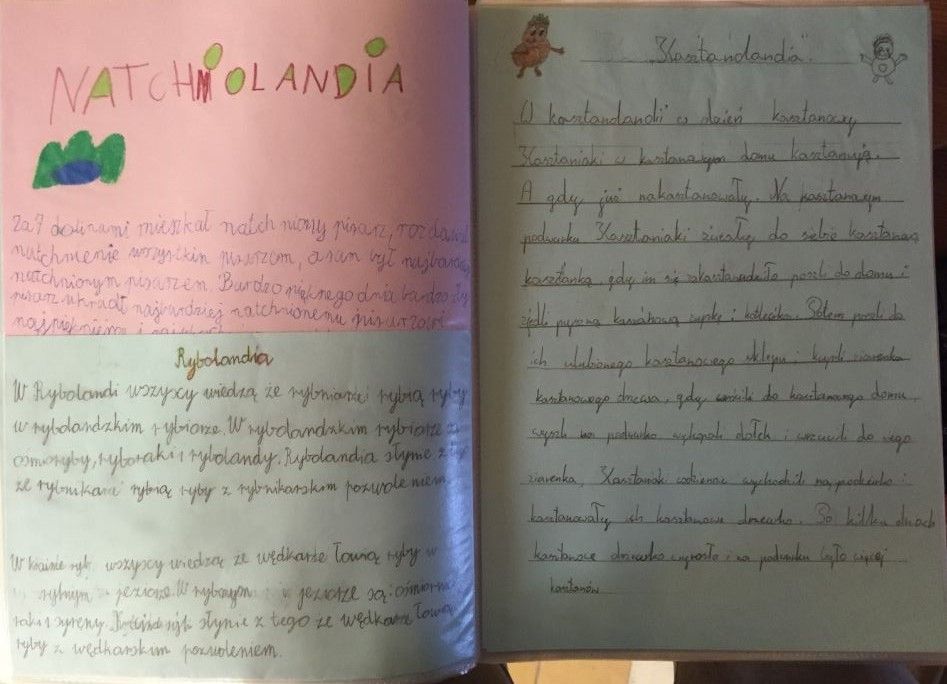 NATCHNIOLANDIA
Za 7 dolinami mieszkał natchniony pisarz, rozdawał
natchnienie wszystkim pisarzom, a sam był najbardziej
natchnionym pisarzem. Bardzo pięknego dnia bardzo zły
pisarz ukradł najbardziej natchnionemu pisarzowi
najpiękniejsze i
Rybolandia
W Rybolandi wszyscy wiedzą że rybniarze rybią ryby
w rybolandzkim rybiorze. W rybolandzkim rybiorze są
ośmioryby, ryboraki i rybolandy. Rybolandia słynie z tego
że rybnikarze rybią ryby z rybnikarskim pozwoleniem.
W krainie ryb wszyscy wiedzą że wędkarze łowią ryby w
rybnym jeziorze. W rybnym jeziorze są ośmiornice
raki i syreny. Kraina ryb słynie z tego że wędkarze łowią
ryby z wędkarskim pozwoleniem.
"Kasztanolandia".
W kasztanolandii w dzień kasztanowy
Kasztaniaki w kasztanowym domu kasztanują.
A gdy już nakasztanowały. Na kasztanowym
podwórku Kasztaniaki rzucały do siebie kasztanową
kasztanką, gdy im się zakasztanudziło poszli do domu i
zjedli pyszną kasztanową zupkę i kotlecika. Potem poszli do
ich ulubionego kasztanowego sklepu i kupili ziarenka
kasztanowego drzewa, gdy wrócili do kasztanowego domu,
wyszli na podwórko wykopali dołek i wrzucili do niego
ziarenka, Kasztaniaki codziennie wychodzili na podwórko i
kasztanowały ich kasztanowe drzewko. Po kilku dniach
kasztanowe drzewko wyrosło i na podwórku było więcej
kasztanów